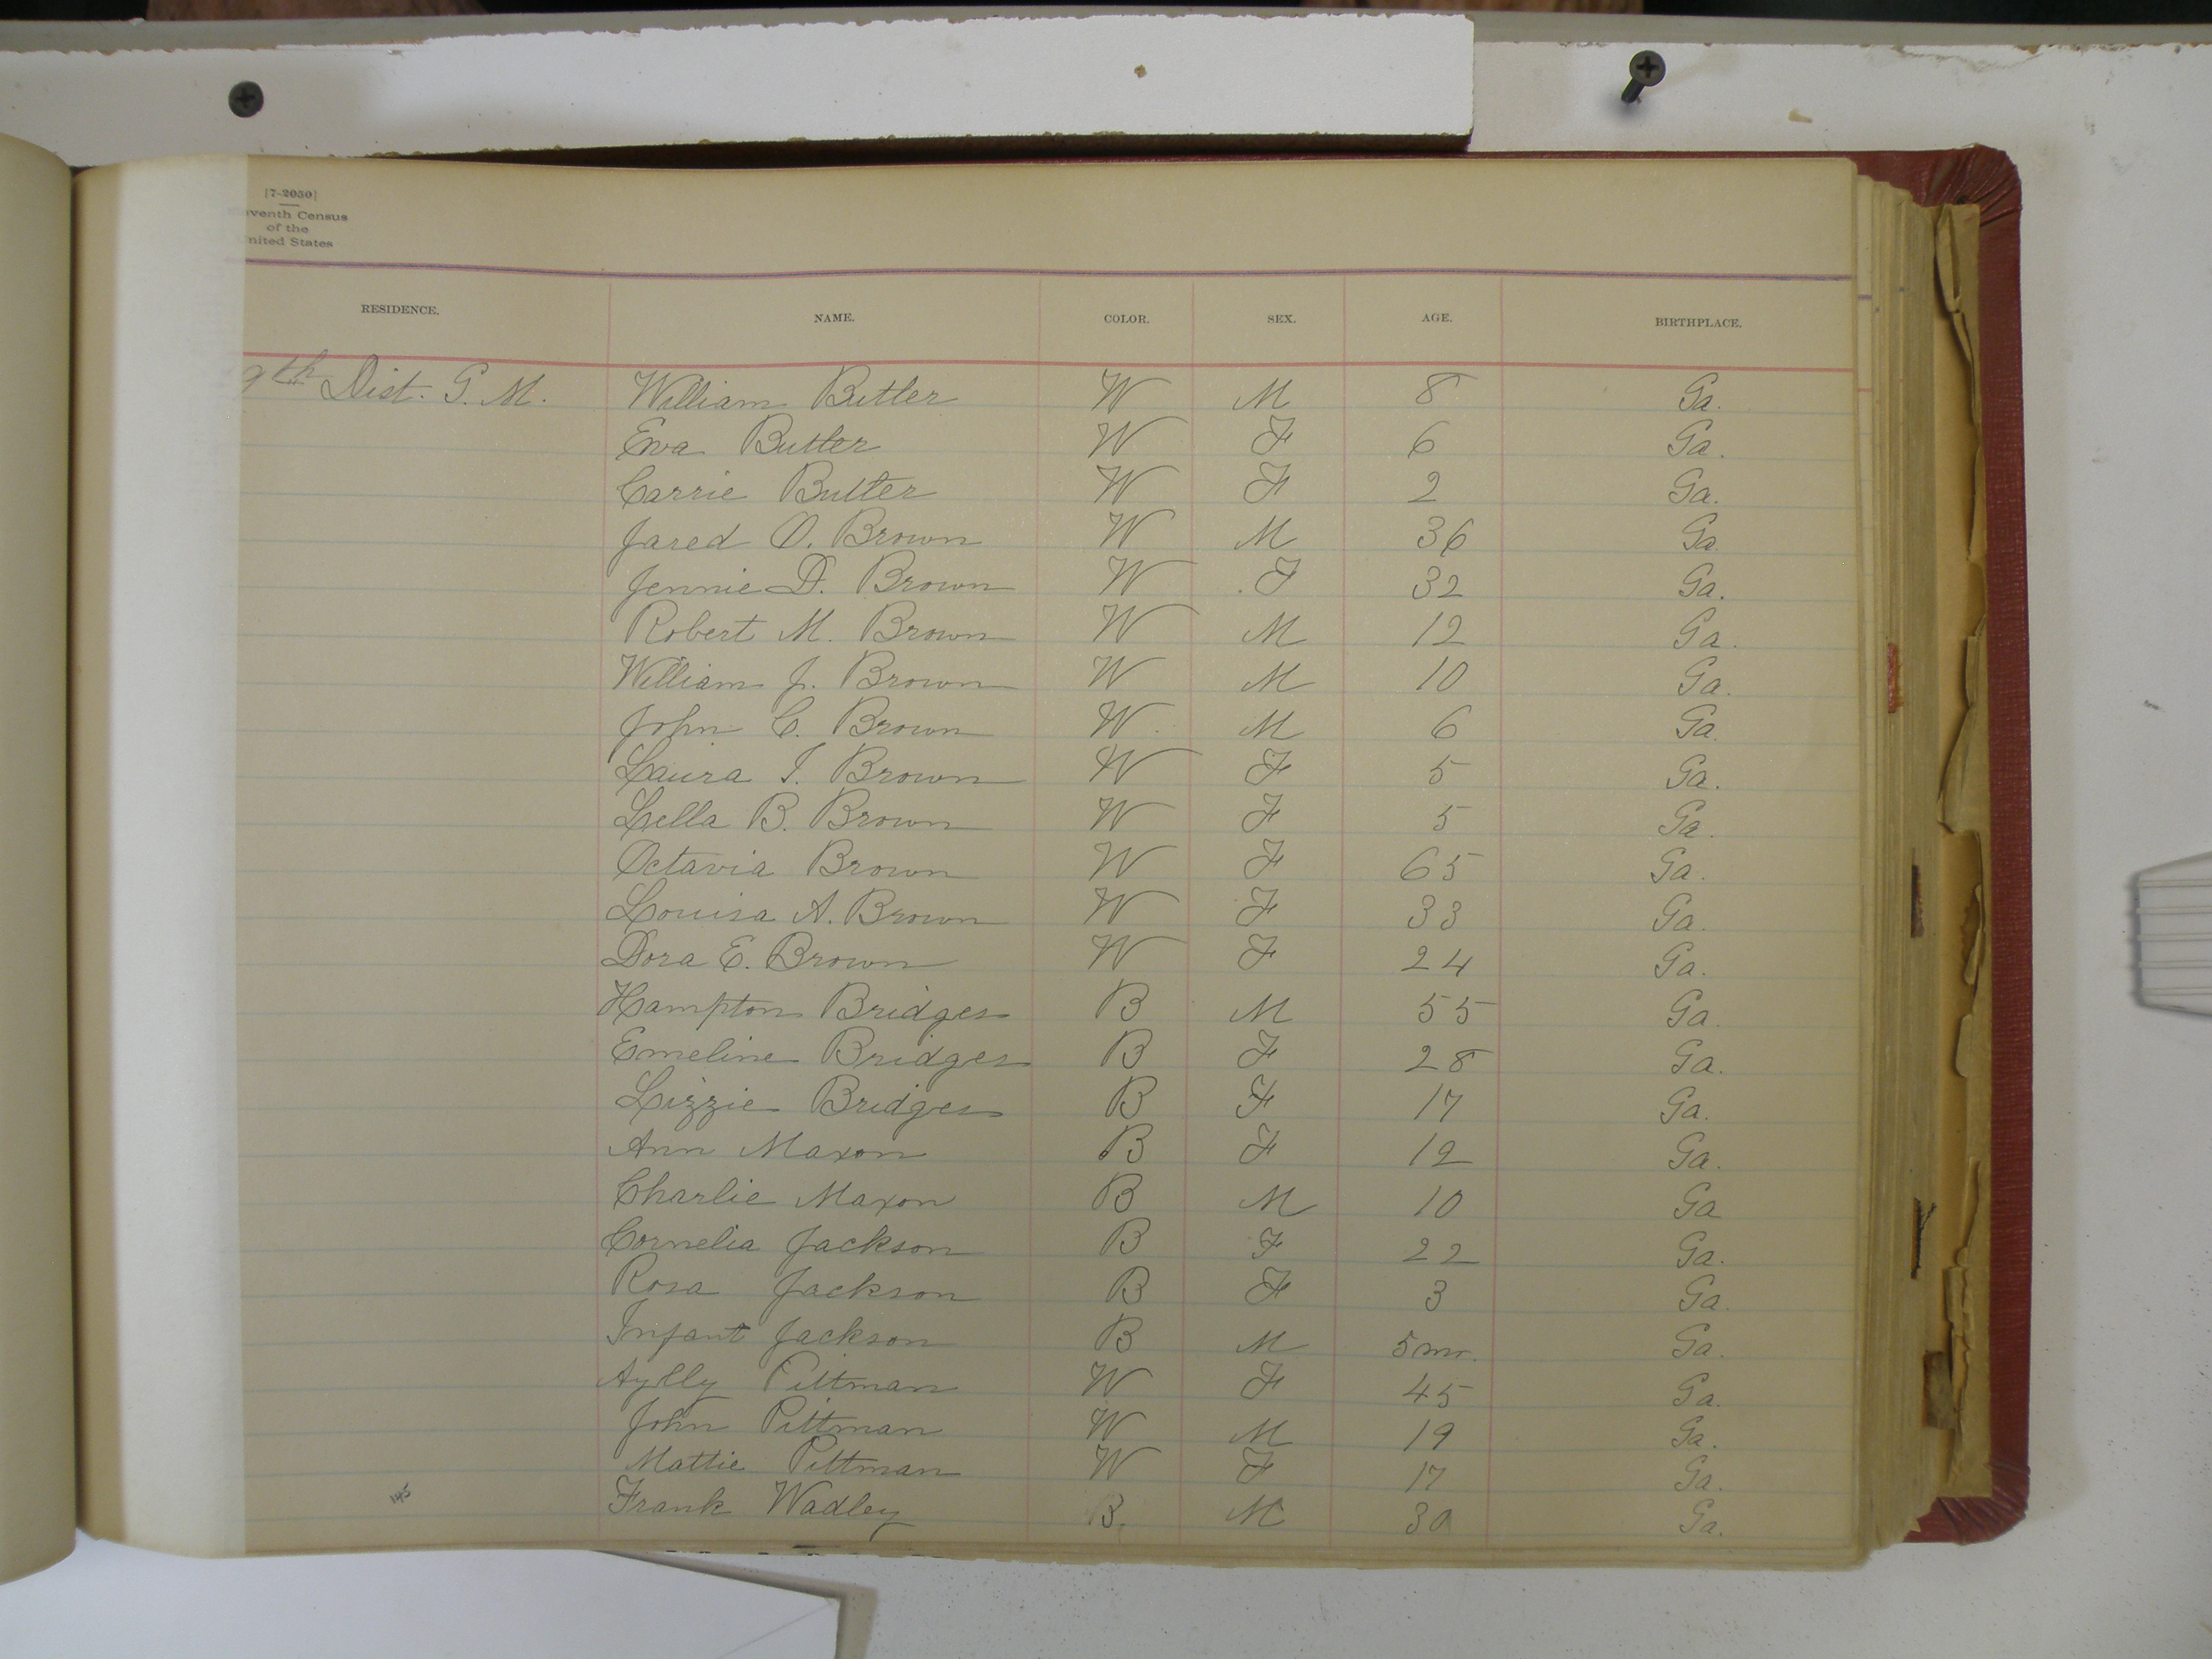 [7-2050]
eventh Census
of the
nited States
RESIDENCE. NAME. COLOR. SEX. AGE. BIRTHPLACE.
9th Dist. G. M. William Butler W M 8 Ga.
Eva Butler W F 6 Ga.
Carrie Butler W F 2 Ga.
Jared O. Brown W M 36 Ga
Jennie D. Brown W F 32 Ga.
Robert M. Brown W M 12 Ga.
William J. Brown W M 10 Ga.
John C. Brown W M 6 Ga
Laura I. Brown W F 5 Ga.
Lella B. Brown W F 5 Ga.
Octavia Brown W F 65 Ga.
Louisa A. Brown W F 33 Ga.
Dora E. Brown W F 24 Ga.
Hampton Bridges B M 55 Ga.
Emeline Bridges B F 28 Ga.
Lizzie Bridges B F 17 Ga.
Ann Maxon B F 12 Ga.
Charlie Maxon B M 10 Ga
Cornelia Jackson B F 22 Ga.
Rosa Jackson B F 3 Ga.
Infant Jackson B M 5 mo. Ga.
Pittman W F 45 Ga.
John Pittman W M 19 Ga.
Mattie Pittman W F 17 Ga.
145 Frank Wadley B. M 30 Ga.